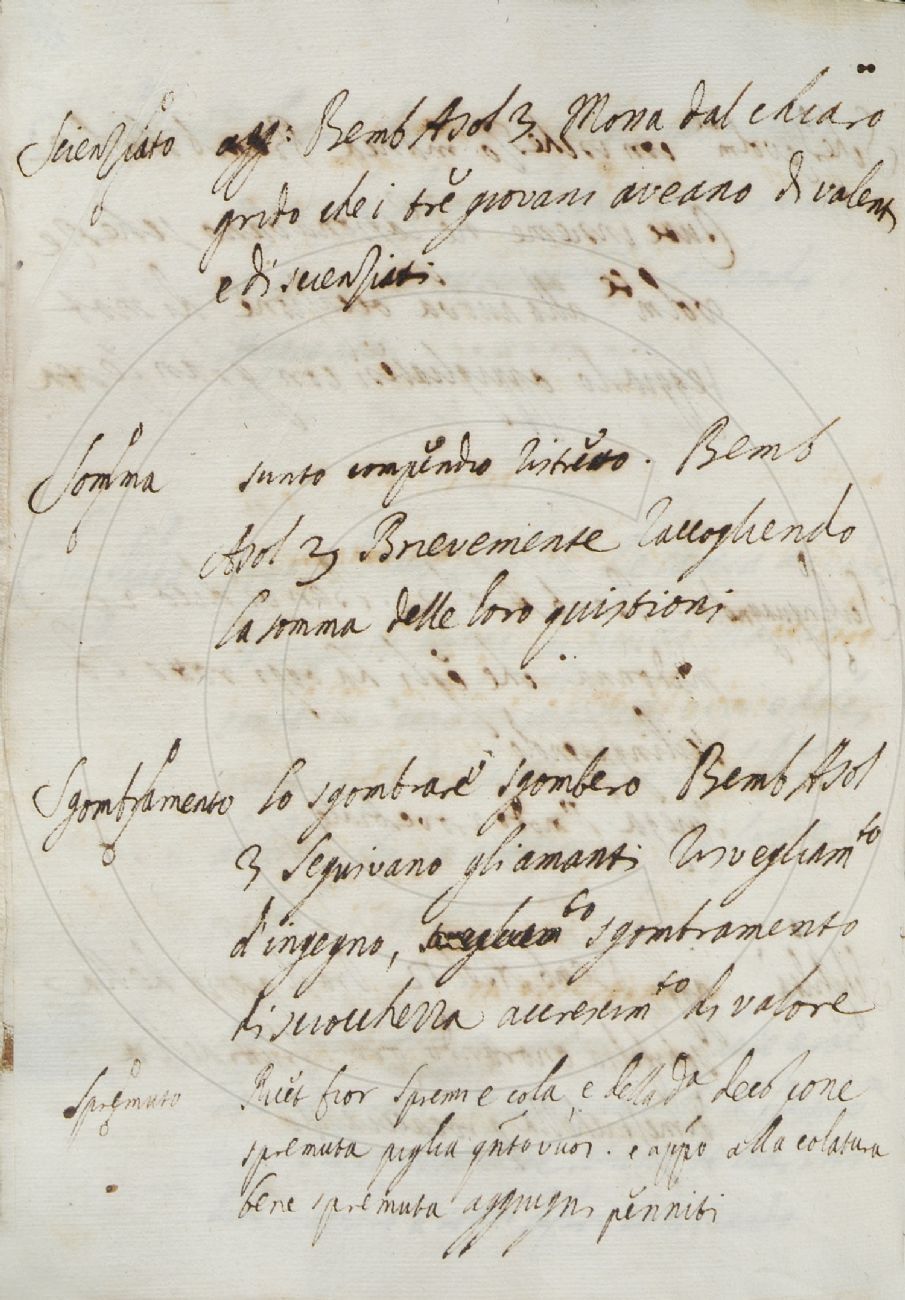 Scienziato agg: Bemb Asol 3 Mossa dal chiaro
grido che i tre giovani aveano di valenti
e di scienziati
Somma sunto compendio ristretto. Bemb
Asol 3 Brievemente raccogliendo
la somma delle loro quistioni
Sgombramento lo sgombrare sgombero Bemb Asol
3 Seguivano gli amanti risvegliam.to
d'ingegno, sgombramento
di sciocchezza accrescim.to di valore
Spremuto Ricet fior spremi e cola e della da decozione
spremuta piglia q̃nto vuoi. e app̃o alla colatura
bene spremuta aggiugni penniti